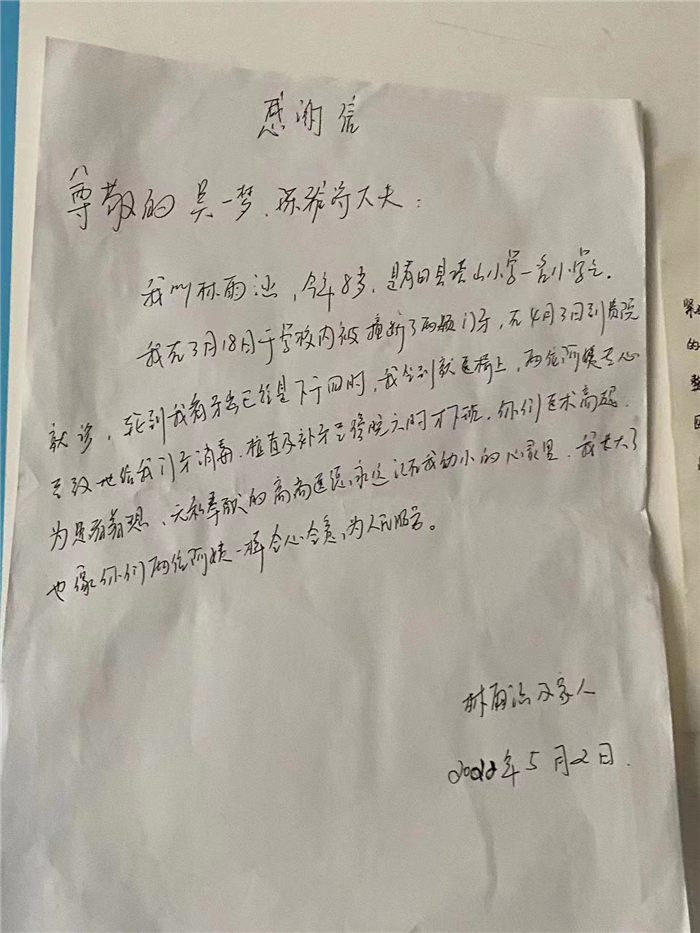 感谢信
尊敬的吴一梦、陈雅芬大夫：
我叫林雨涵，今年8岁，是莆田县山小学一名小学生。
我在3月18日于学校内被撞断了两颗门牙，在4月3日到贵院
就诊，轮到我看牙齿已经是下午四时，我坐到就医椅上，两位阿姨专心
至致地给我门牙消毒、植直及补牙至傍晚六时才下班。你们医术高超，
为患者着想、无私奉献的高尚医德永远记在我幼小的心灵里，我长大了
也像你们两位阿姨一样全心全意，为人民服务。
林雨涵及家人
2022年5月2日.
紧
的
整